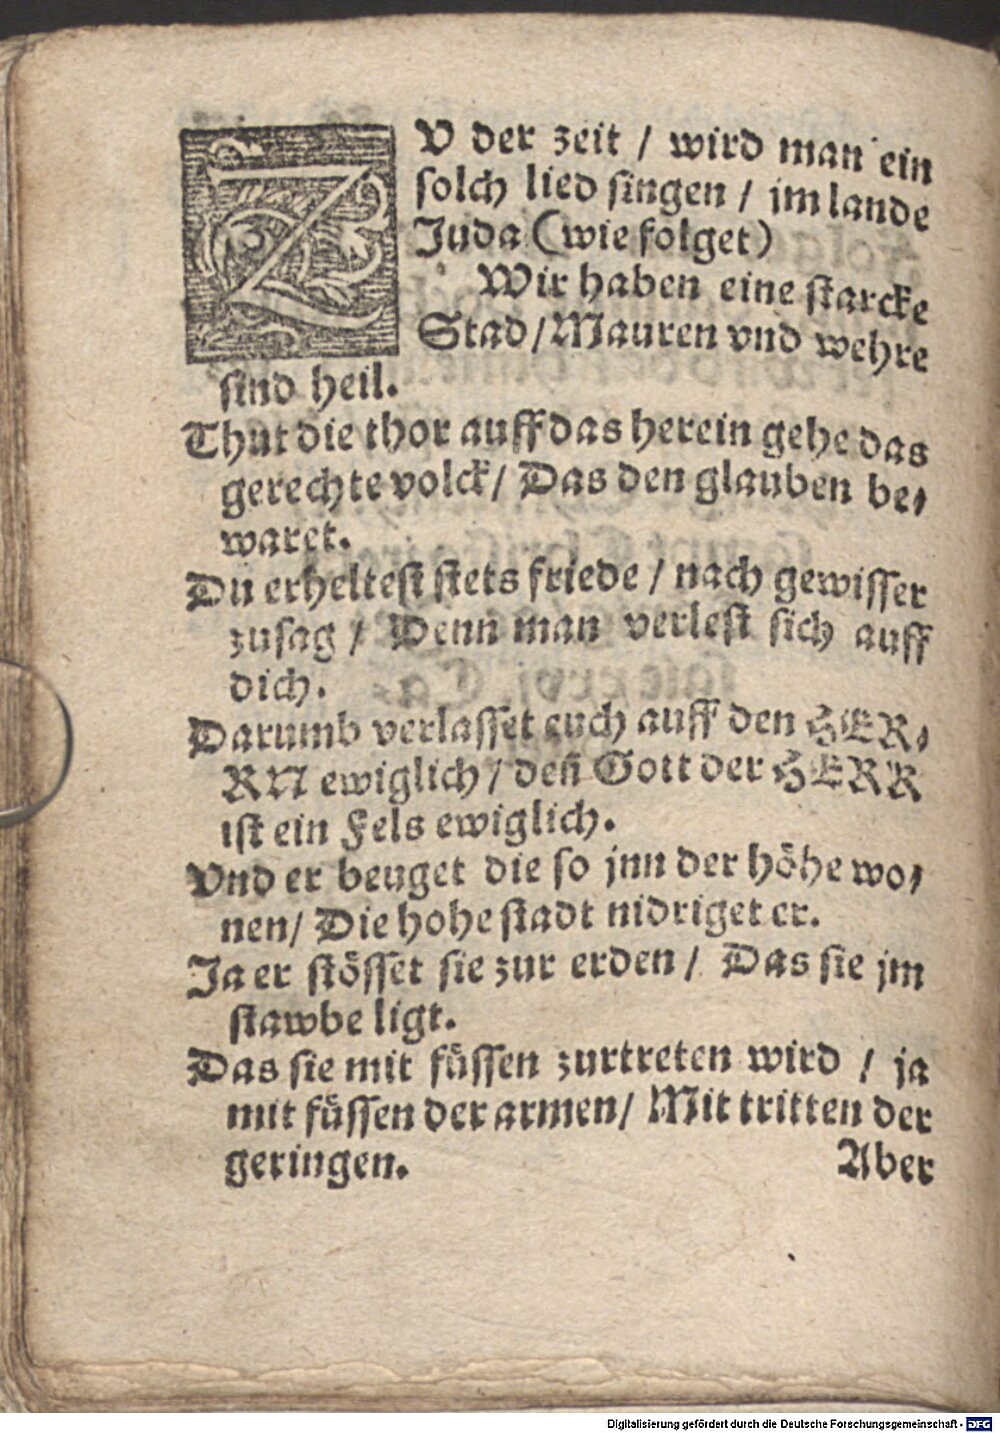 ZV der zeit / wird man ein
solch lied singen / jm lande
Juda (wie folget)
Wir haben eine starcke
Stad / Mauren vnd wehre
sind heil.
Thut die thor auff das herein gehe das
gerechte volck / Das den glauben be-
waret.
Du erheltest stets friede / nach gewisser
zusag / Denn man verlest sich auff
dich.
Darumb verlasset euch auff den HER-
RN ewiglich / deñ Gott der HERR
ist ein Fels ewiglich.
Vnd er beuget die so jnn der höhe wo-
nen / Die hohe stadt nidriget er.
Ja er stösset sie zur erden / Das sie jm
stawbe ligt.
Das sie mit füssen zurtreten wird / ja
mit füssen der armen / Mit tritten der
geringen.
Aber
Digitalisierung gefördert durch die Deutsche Forschungsgemeinschaft - DFG